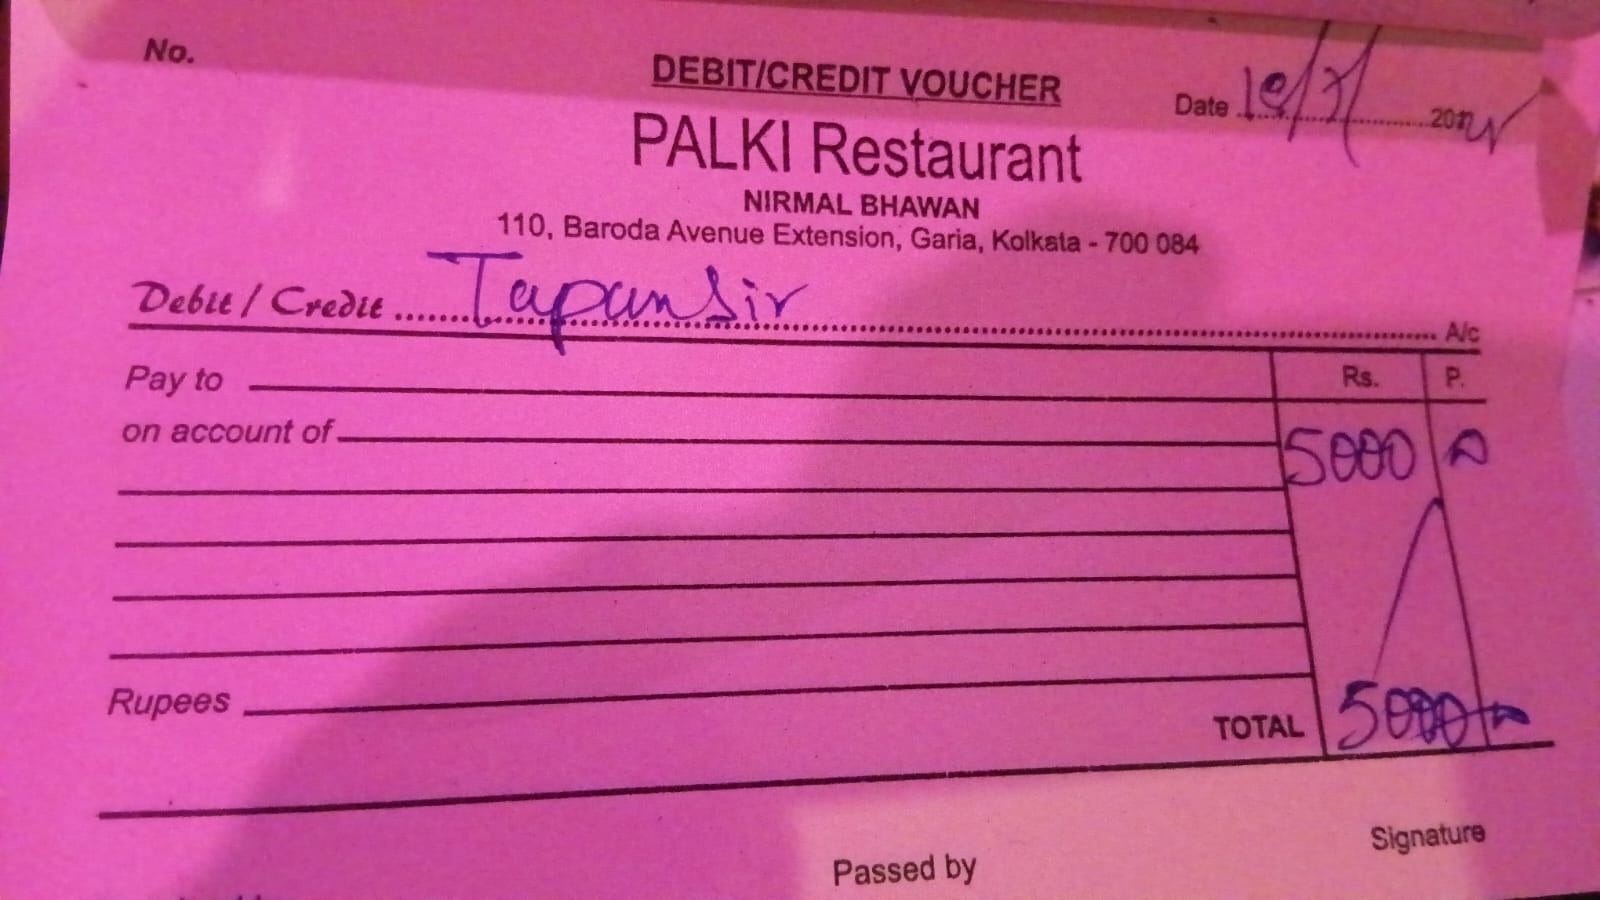 No.
DEBIT/CREDIT VOUCHER
Date
PALKI Restaurant
NIRMAL BHAWAN
110, Baroda Avenue Extension, Garia, Kolkata - 700 084
Debit / Credit Tapan Sir A/c
Pay to Rs. P.
on account of 5000
Rupees
TOTAL 5000
Signature
Passed by